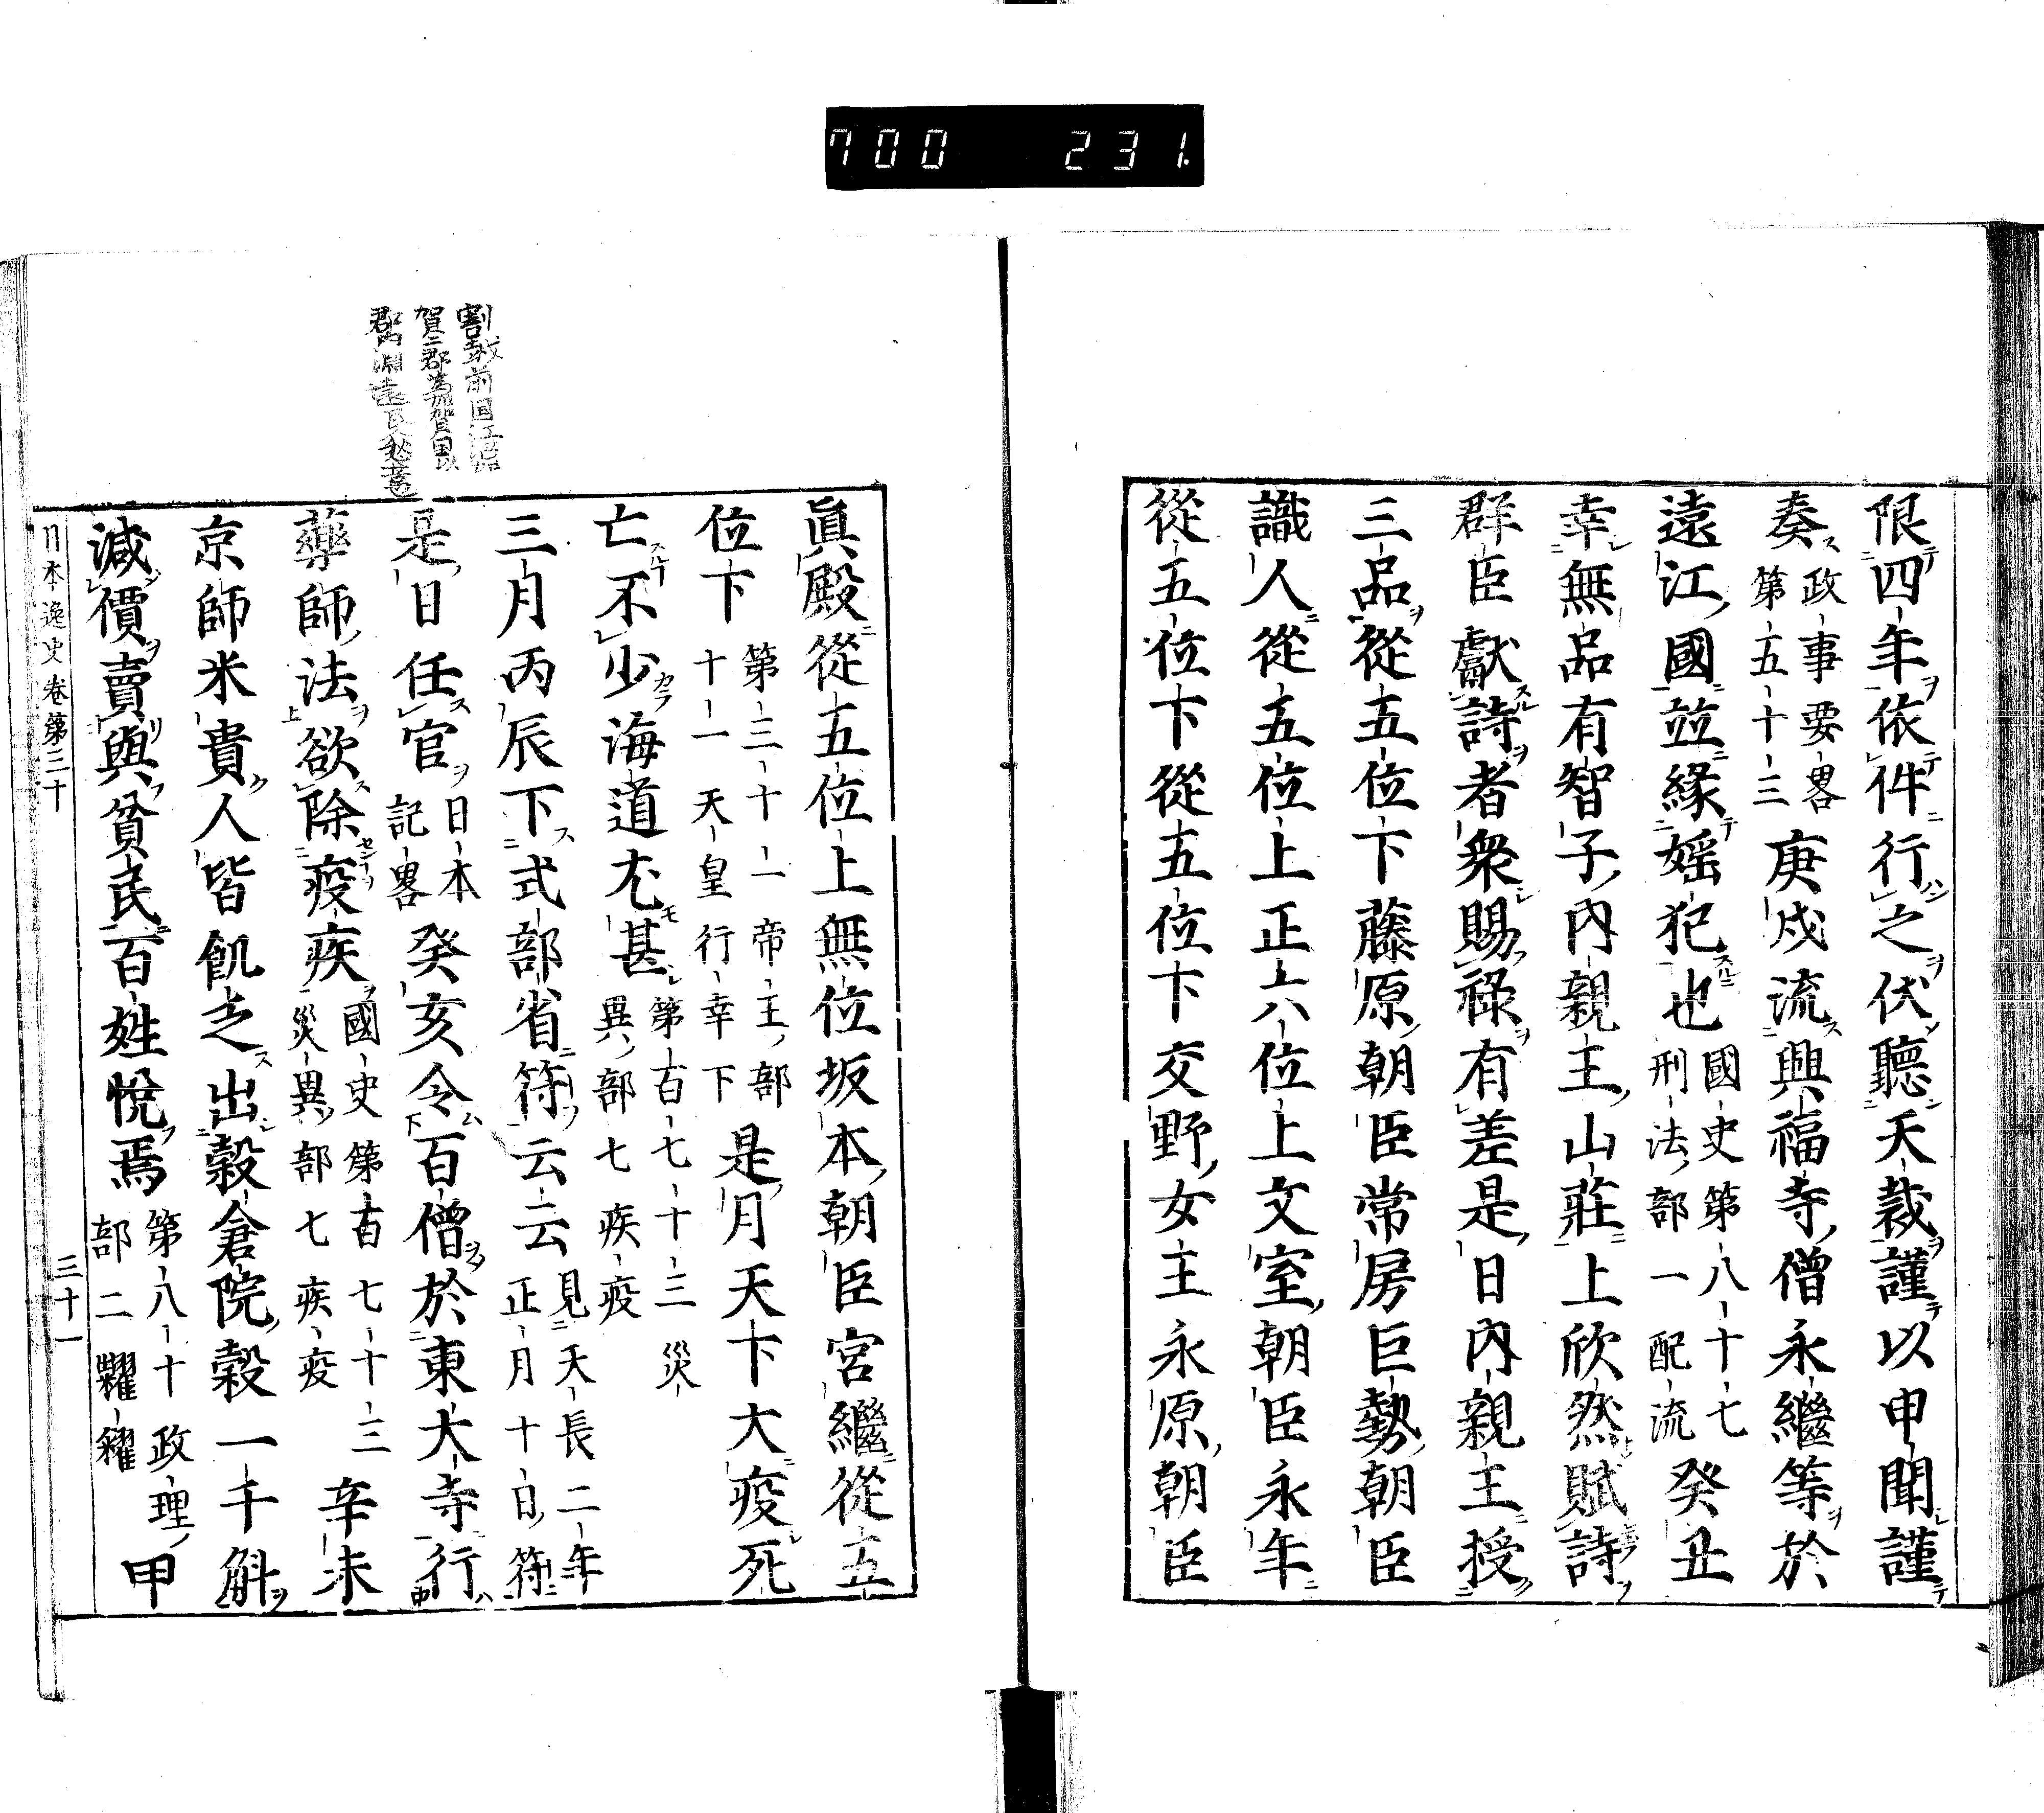 700 231.
限四年依件行之伏聽天裁謹以申聞謹
奏政事要畧第五十三庚戌流興福寺僧永繼等於
遠江國並緣婬犯也國史第八十七刑法部一配流癸丑
幸無品有智子內親王山莊上欣然賦詩
群臣獻詩者衆賜祿有差是日內親王授
三品從五位下藤原朝臣常房巨勢朝臣
識人從五位上正六位上文室朝臣永年
從五位下從五位下交野女王永原朝臣
眞殿從五位上無位坂本朝臣宮繼從五
位下第三十一帝王部十一天皇行幸下是月天下大疫死
亡不少海道尤甚第百七十三災異部七疾疫
三月丙辰下式部省符云云見天長二年正月十日符
是日任官日本記畧癸亥令百僧於東大寺行
藥師法欲除疫疾國史第百七十三災異部七疾疫辛未
京師米貴人皆飢乏出穀倉院穀一千斛
減價賣與貧民百姓悅焉第八十政理部二糶糴甲
日本逸史卷第三十 三十一
割 前国江沼
賀二郡為加賀国以
郡